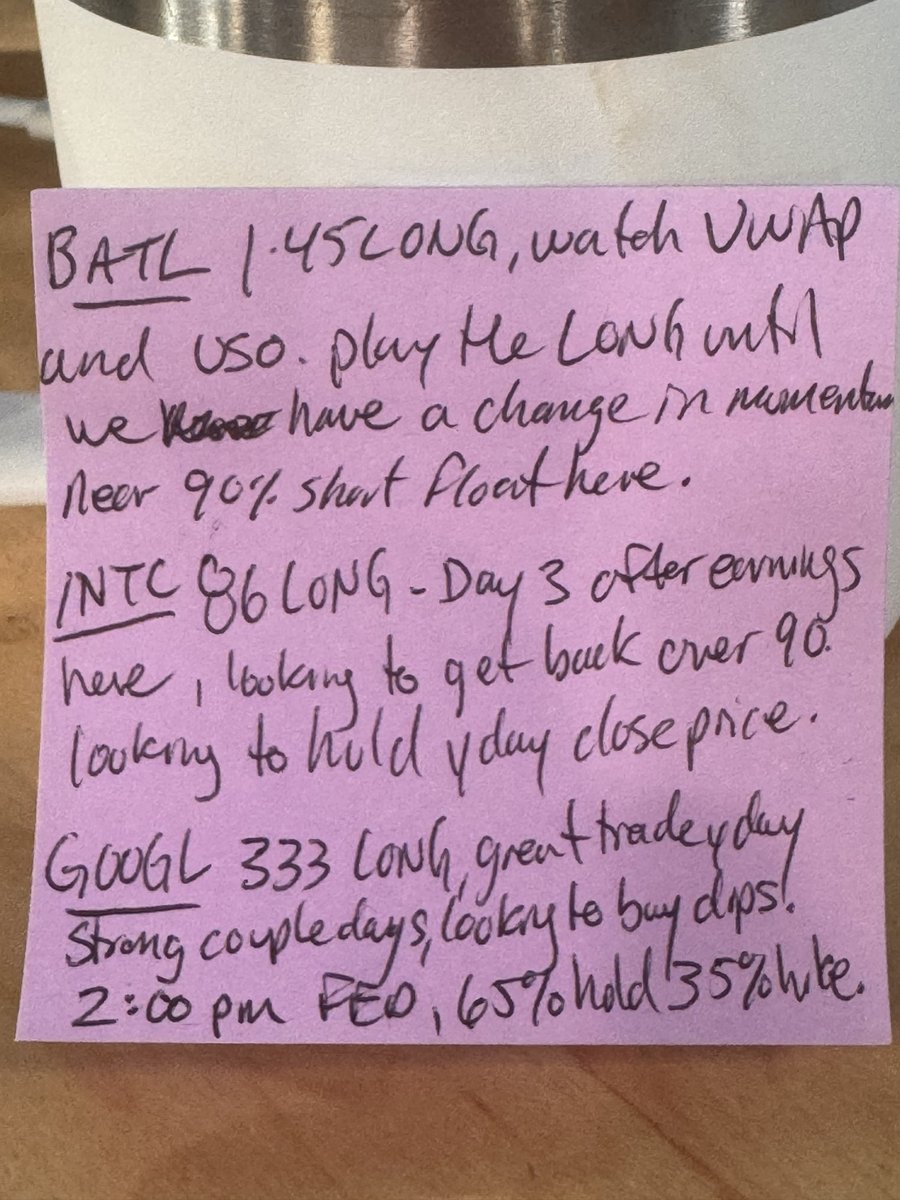 BATL 1.45 LONG, watch VWAP
and USO. play the LONG until
we have a change in momentum
Near 90% short float here.
INTC 86 LONG - Day 3 after earnings
here, looking to get back over 90.
looking to hold yday close price.
GOOGL 333 LONG, great trade yday
Strong couple days, looking to buy dips!
2:00 pm FED, 65% hold 35% hike.